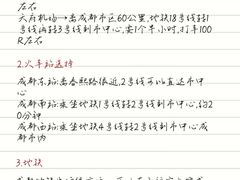 左右
天府机场→离成都市区60公里,地铁18号线转1
号线再转3号线到市中心,要1个半小时,打车100
R左右
2.火车站选择
成都东站:离春熙路很近,2号线可以直达市中
心
成都南站:乘坐地铁1号线转2号线到市中心,约2
0分钟
成都西站:乘坐地铁4号线转2号线到市中心成
都市内
3.地铁